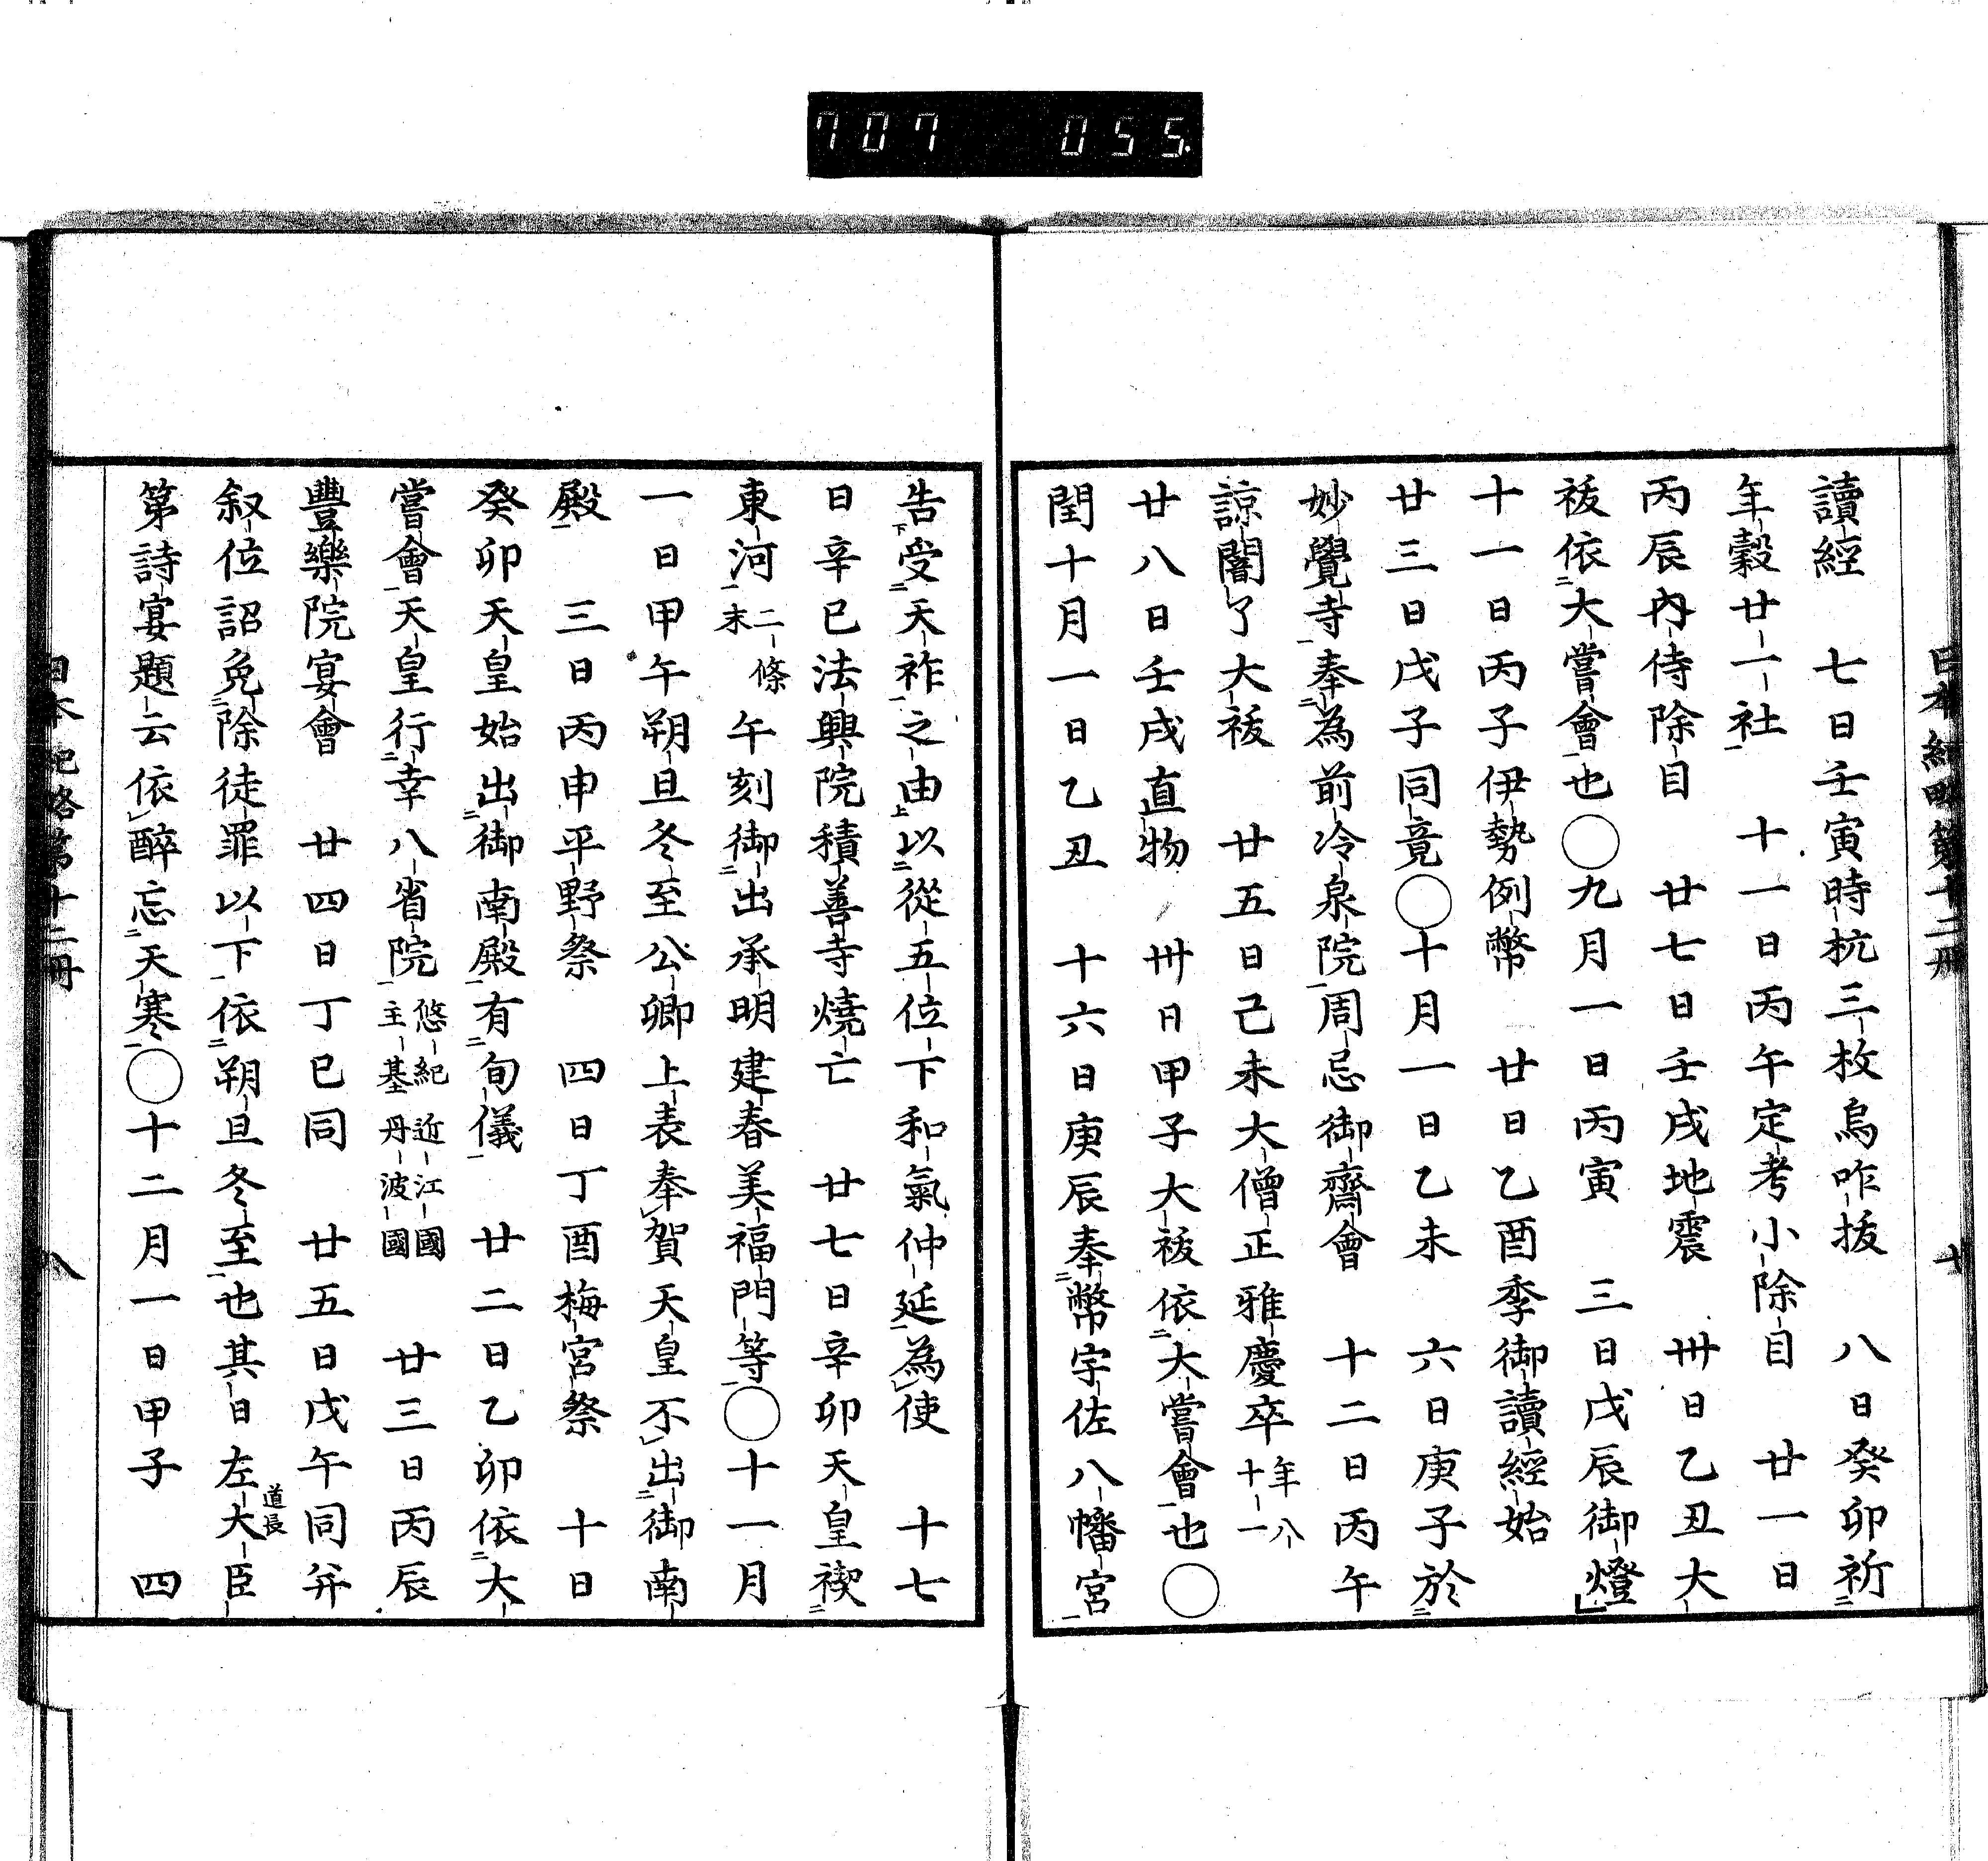 707 055
日本紀略第十二冊
讀經　七日壬寅時杭三枚烏咋拔　八日癸卯祈
年穀廿一社　十一日丙午定考小除目　廿一日
丙辰內侍除目　廿七日壬戌地震　卅日乙丑大
祓依大嘗會也〇九月一日丙寅　三日戊辰御燈
十一日丙子伊勢例幣　廿日乙酉季御讀經始
廿三日戊子同竟〇十月一日乙未　六日庚子於
妙覺寺奉為前冷泉院周忌御齋會　十二日丙午
諒闇了大祓　廿五日己未大僧正雅慶卒年八十一
廿八日壬戌直物　卅日甲子大祓依大嘗會也〇
閏十月一日乙丑　十六日庚辰奉幣宇佐八幡宮
告受天祚之由以從五位下和氣仲延為使　十七
日辛巳法興院積善寺燒亡　廿七日辛卯天皇禊
東河二條末　午刻御出承明建春美福門等〇十一月
一日甲午朔旦冬至公卿上表奉賀天皇不出御南
殿　三日丙申平野祭　四日丁酉梅宮祭　十日
癸卯天皇始出御南殿有旬儀　廿二日乙卯依大
嘗會天皇行幸八省院悠紀近江國主基丹波國　廿三日丙辰
豐樂院宴會　廿四日丁巳同　廿五日戊午同并
叙位詔免除徒罪以下依朔旦冬至也其日左大臣道長
第詩宴題云依醉忘天寒〇十二月一日甲子　四
日本紀略第十二冊　八